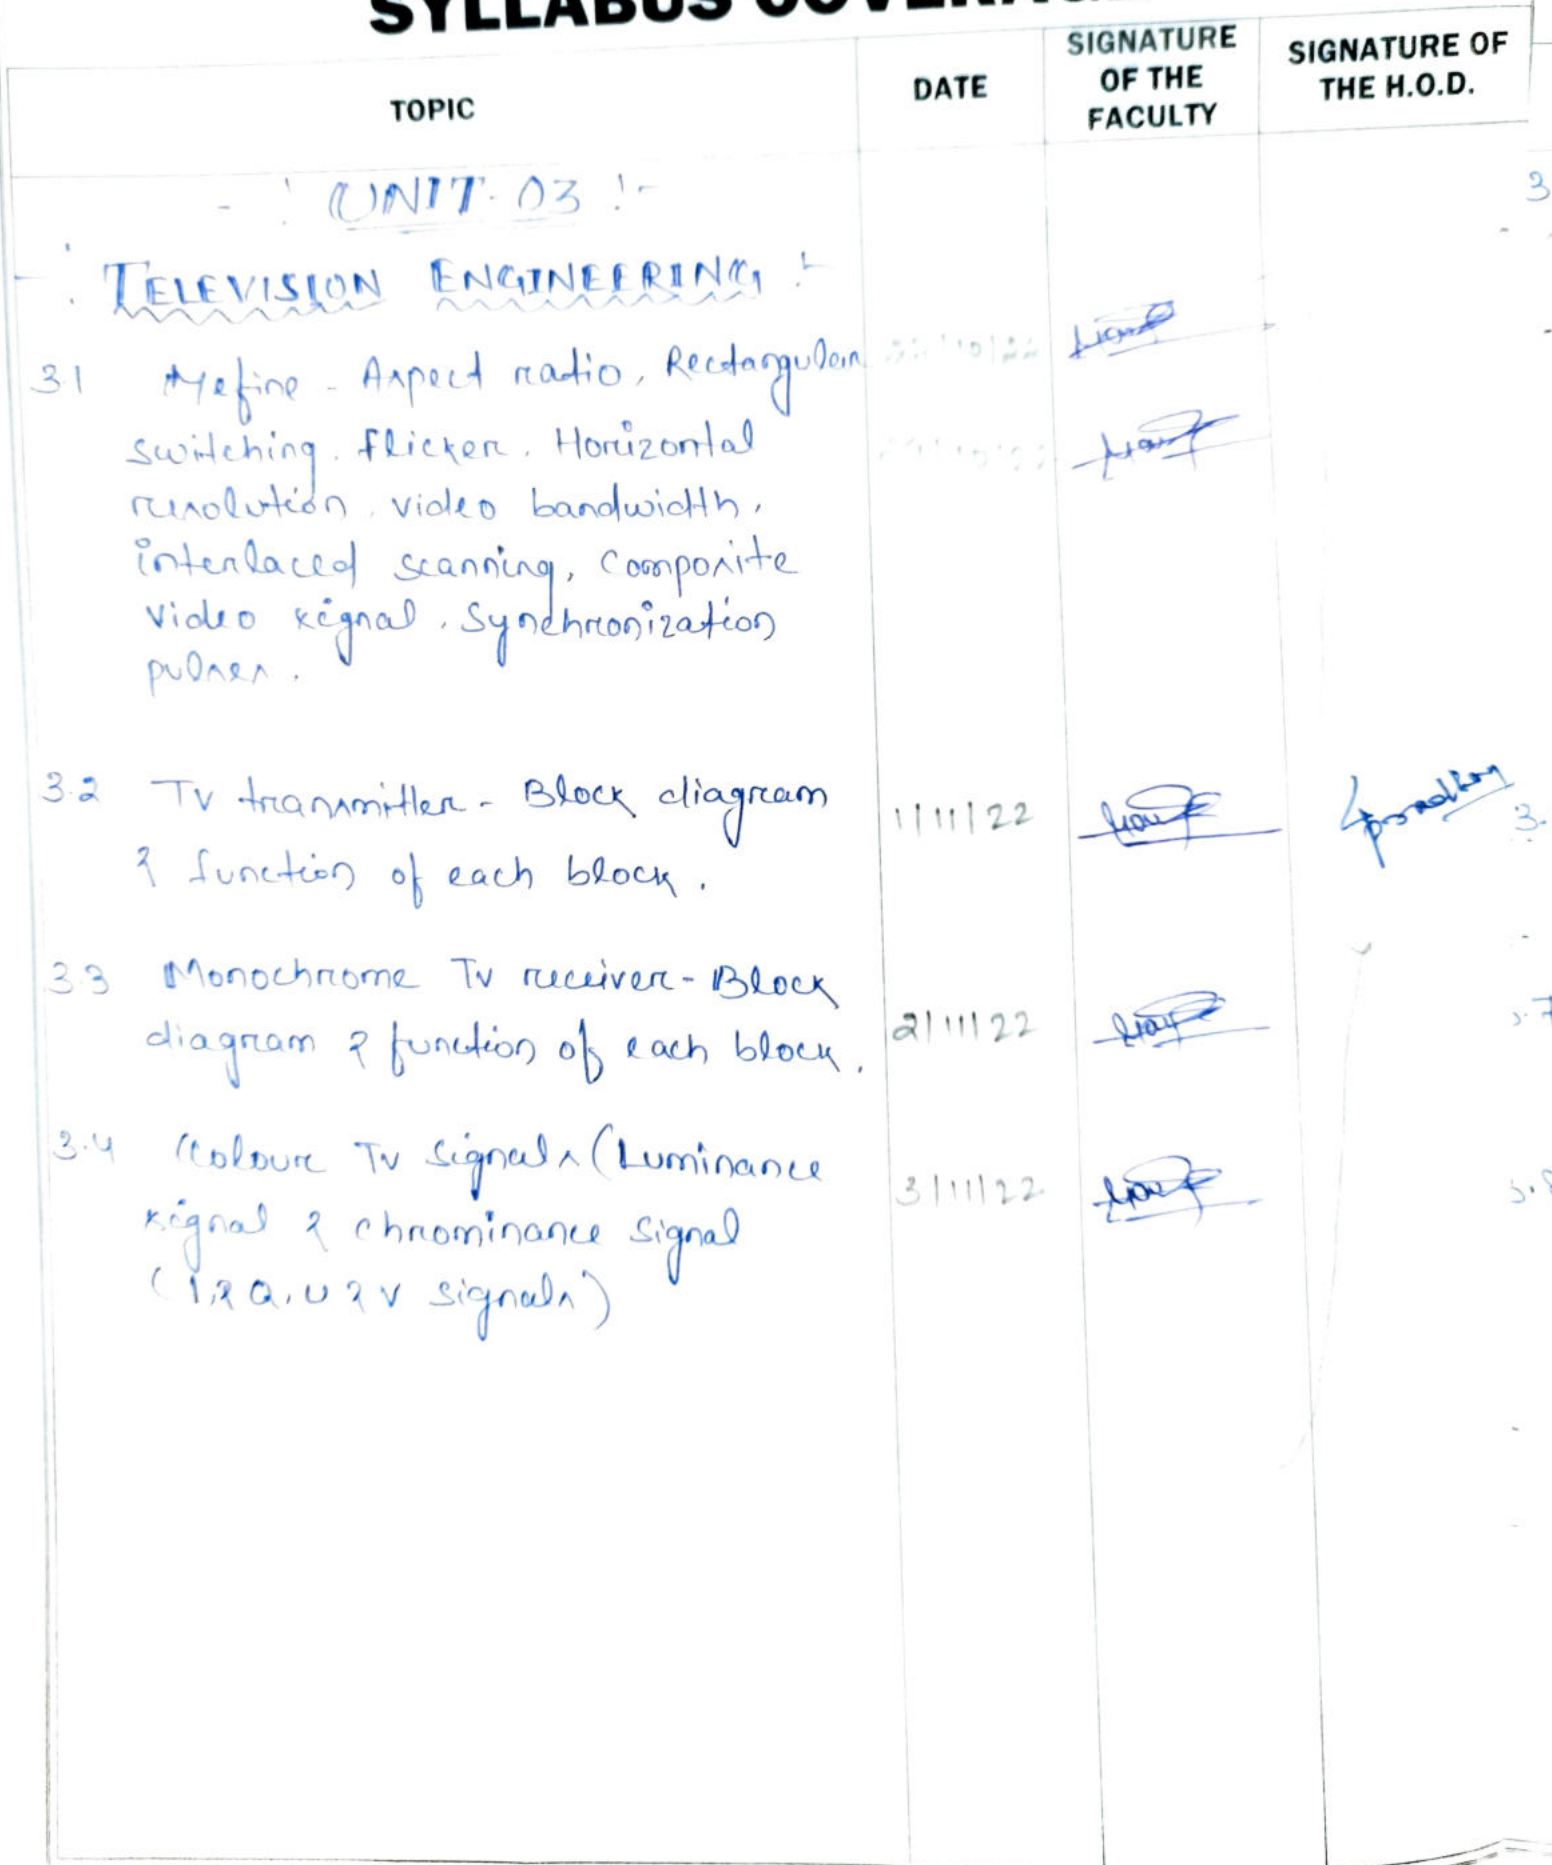 SYLLABUS
TOPIC
DATE
SIGNATURE OF THE FACULTY
SIGNATURE OF THE H.O.D.
UNIT-03 :-
TELEVISION ENGINEERING :-
3.1 Define - Aspect ratio, Rectangular
switching, flicker, Horizontal
resolution, video bandwidth,
interlaced scanning, Composite
video signal, Synchronization
pulses.
3.2 TV transmitter - Block diagram 1/11/22
& function of each block.
3.3 Monochrome TV receiver - Block
diagram & function of each block. 2/11/22
3.4 Colour TV signals (Luminance 3/11/22
signal & chrominance signal
(I & Q, U & V signals)